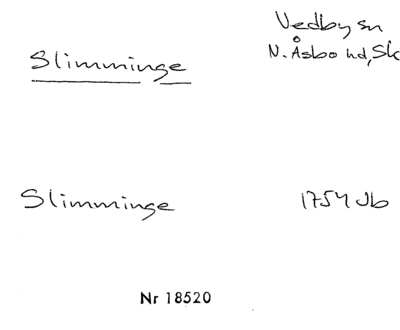 Vedby sn
Slimminge N. Åsbo hd, Sk
Slimminge 1754 Jb
Nr 18520